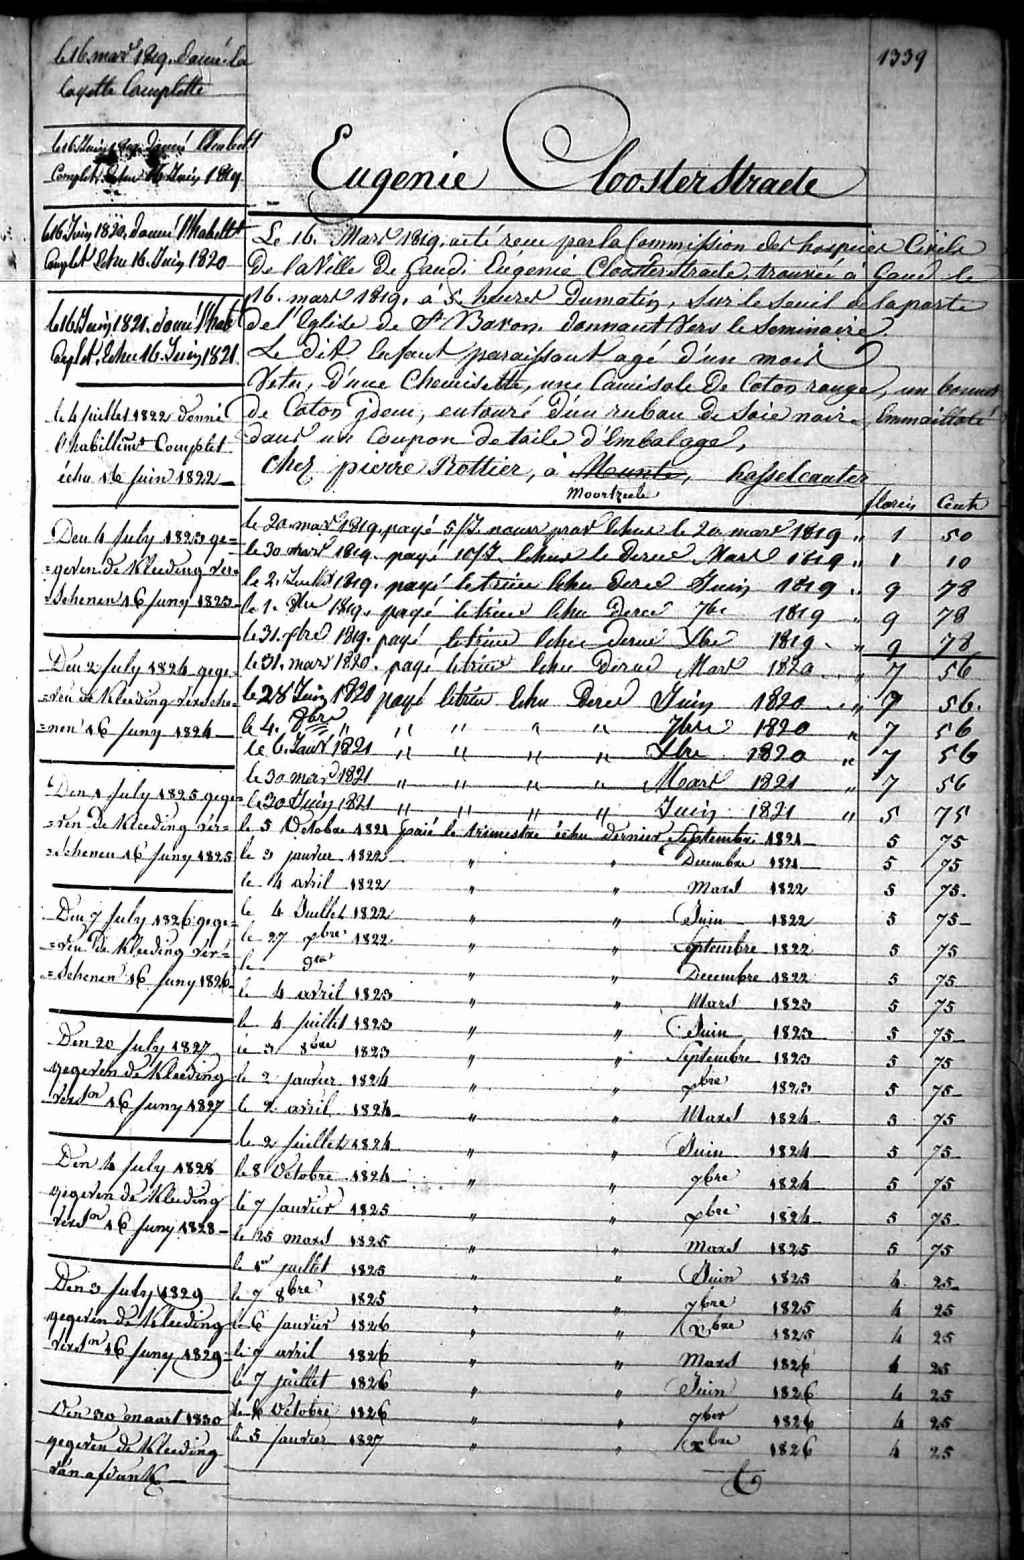 1339
le 16 mars 1819. donné la
layette Complette
le 16 Juin 1819 donné
Complet. echu 16 Juin 1819
le 16 Juin 1820. donné l'habillt
Complet Echu 16. Juin 1820
le 16 Juin 1821. donné l'habt
Complet. Echu 16. Juin 1821.
le 4 juillet 1822 donné
l'habillemt Complet
échu 16 juin 1822
Den 4 July 1823 ge=
=geven de Kleeding ver=
=schenen 16 Juny 1823
Den 2 July 1824 gege=
=ven de Kleeding versche=
=nen 16 Juny 1824
Den 1 July 1825 gege=
=ven de Kleeding ver=
=schenen 16 Juny 1825
Den 7 July 1826 gege=
=ven de Kleeding ver=
=schenen 16 Juny 1826
Den 20 July 1827
gegeven de Kleeding
verson 16 Juny 1827
Den 4 July 1828
gegeven de Kleeding
verson 16 Juny 1828
Den 3 July 1829
gegeven de Kleeding
verson 16 Juny 1829
Den 30 maart 1830
gegeven de Kleeding
van afdank
Eugenie Cloosterstraete
Le 16. Mars 1819. a été recu par la Commission des hospices Civils
De la Ville De Gand. Eugénie Cloosterstraete trouvée à Gand le
16. mars 1819. à 5. heures Dumatin, sur le seuil de la porte
de l'Eglise de St Bavon. donnant Vers le Seminaire.
Le Dit Enfant paraissant agé d'un mois
Vetu, D'une Chemisette, une Camisole De Coton rouge, un bonnet
de Coton jdem, entouré d'un ruban De Soie noire, Emmailloté
dans un Coupon de toile d'Embalage,
Chez pierre Rottier, à Munte, hasselcauter
Moortzeele
florins Cents
le 20. mars 1819. payé 5/7. nour prov Echus le 20. mars 1819 " 1 50
le 30 mars 1819. payé 10/7. Echus le Dernr Mars 1819 " 1 10
le 2. Juillt 1819. payé le trice Echu Derer Juin 1819 " 9 78
le 1. 8bre 1819. payé le trice Echu derer 7bre 1819 " 9 78
le 31. Xbre 1819. payé le trice Echu Derer Xbre 1819 " 9 78
le 31. mars 1820. payé le trice Echu Derer Mars 1820 " 7 56
le 28 Juin 1820 payé le trice Echu Derer Juin 1820 " 7 56.
le 4. 8bre " " " " " 7bre 1820 " 7 56
le 6. Janvr 1821 " " " " Xbre 1820 " 7 56
le 30 mars 1821 " " " " Mars 1821 " 7 56
le 30 Juin 1821 " " " " Juin 1821 " 5 75
le 5 Octobre 1821 payé le trimestre échu dernier Septembre 1821 5 75
le 3 janvier 1822 " " Decembre 1821 5 75
le 4 avril 1822 " " Mars 1822 5 75
le 4 Juillet 1822 " " Juin 1822 5 75
le 27 xbre 1822 " " Septembre 1822 5 75
le dto " " Decembre 1822 5 75
le 4 avril 1823 " " Mars 1823 5 75
le 4 juillet 1823 " " Juin 1823 5 75
le 3 8bre 1823 " " Septembre 1823 5 75
le 2 janvier 1824 " " xbre 1823 5 75
le 2 avril 1824 " " Mars 1824 5 75
le 2 juillet 1824 " " Juin 1824 5 75
le 8 Octobre 1824 " " 7bre 1824 5 75
le 7 janvier 1825 " " xbre 1824 5 75
le 25 mars 1825 " " Mars 1825 5 75
le 1er juillet 1825 " " Juin 1825 4 25
le 7 8bre 1825 " " 7bre 1825 4 25
le 6 janvier 1826 " " Xbre 1825 4 25
le 7 avril 1826 " " Mars 1826 4 25
le 7 juillet 1826 " " Juin 1826 4 25
le 6 Octobre 1826 " " 7bre 1826 4 25
le 5 janvier 1827 " " Xbre 1826 4 25